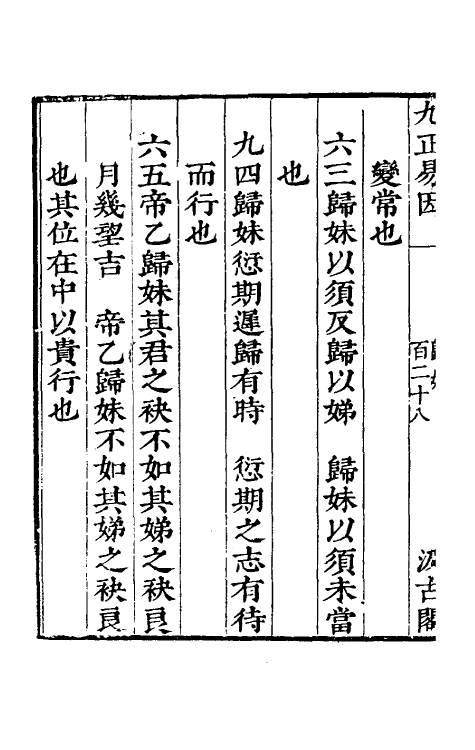 九正易因
歸妹
百二十八
汲古閣
變常也
六三歸妹以須反歸以娣　歸妹以須未當
也
九四歸妹愆期遲歸有時　愆期之志有待
而行也
六五帝乙歸妹其君之袂不如其娣之袂良
月幾朢吉　帝乙歸妹不如其娣之袂良
也其位在中以貴行也